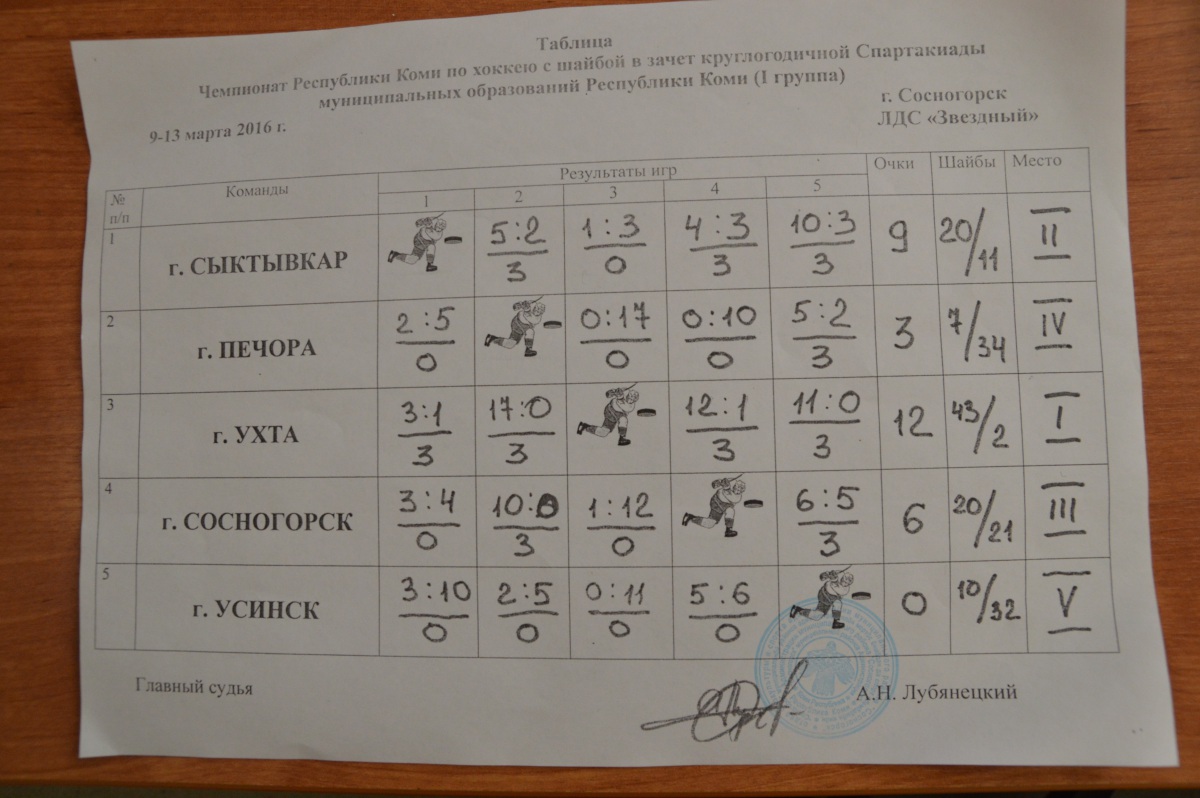 Таблица
Чемпионат Республики Коми по хоккею с шайбой в зачет круглогодичной Спартакиады
муниципальных образований Республики Коми (I группа)
9-13 марта 2016 г.
г. Сосногорск
ЛДС «Звездный»
№ п/п Команды Результаты игр Очки Шайбы Место
1 2 3 4 5
1 г. СЫКТЫВКАР 5:2 1:3 4:3 10:3 9 20/11 II
3 0 3 3
2 г. ПЕЧОРА 2:5 0:17 0:10 5:2 3 7/34 IV
0 0 0 3
3 г. УХТА 3:1 17:0 12:1 11:0 12 43/2 I
3 3 3 3
4 г. СОСНОГОРСК 3:4 10:0 1:12 6:5 6 20/21 III
0 3 0 3
5 г. УСИНСК 3:10 2:5 0:11 5:6 0 10/32 V
0 0 0 0
Главный судья А.Н. Лубянецкий